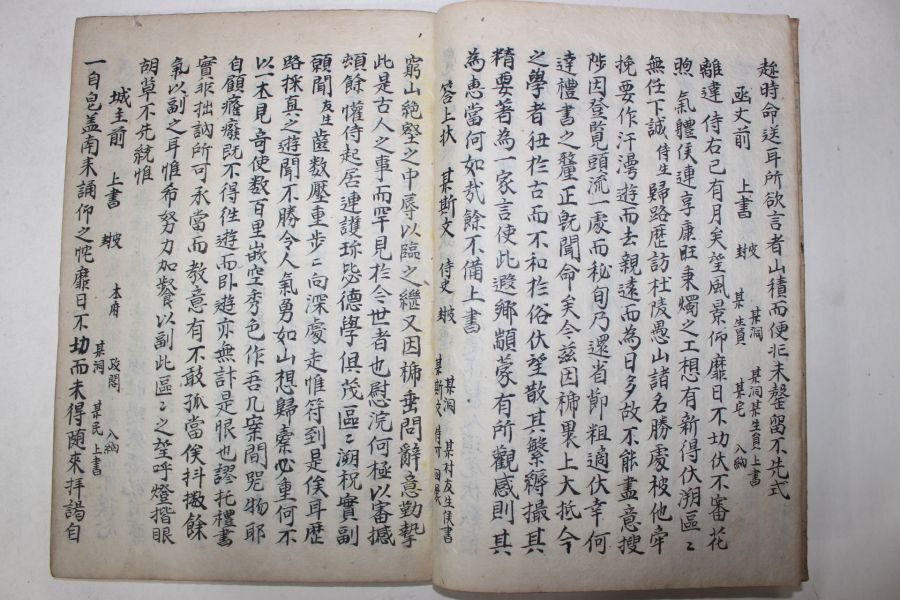 趁時命送耳所欲言者山積而便忙未整留不先式
函丈前 上書 封皮 某洞某生員上書 某洞某生員 某宅 入納
離違侍右已有月矣望風景仰靡日不切伏不審花
煦 氣體候連享康旺秉燭之工想有新得伏溯區〻
無任下誠侍生歸路歷訪杜陵愚山諸名勝處被他牢
挽要作汗漫遊而去親遠而為日多故不能盡意搜
陟因登覧頭流一處而私旬乃還省節粗適伏幸何
達禮書之釐正旣聞命矣今玆因褫稟上大抵今
之學者狃於古而不和於俗伏望散其繁縟撮其
精要著為一家言使此遐鄉顓蒙有所觀感則其
為惠當何如哉餘不備上書
答上狀 某斯文 侍史 封皮 某洞 某村友生候書
窮山絶壑之中辱以臨之繼又因褫垂問辭意勤摯
此是古人之事而罕見於今世者也慰浣何極以審撼
頓餘懽侍起居連護珎毖德學俱茂區〻溯祝實副
願聞友生齒數壓重步〻向深處走惟符到是俟耳歷
路採真之遊聞不勝令人氣勇如山想歸槖必重何不
以一本見寄使數百里嵌空秀色作吾几案間咒物耶
自顧癃癈旣不得徃遊而卧遊亦無計是恨也謬托禮書
實非拙訥所可承當而教意有不敢孤當俟抖擻餘
氣以副之耳惟希努力加餐以副此區〻之望呼燈揩眼
胡草不先統惟
城主前 上書 封皮 本府 政閤 入納 某洞 某民上書
一自皂盖南來誦仰之忱靡日不切而未得随來拜謁自